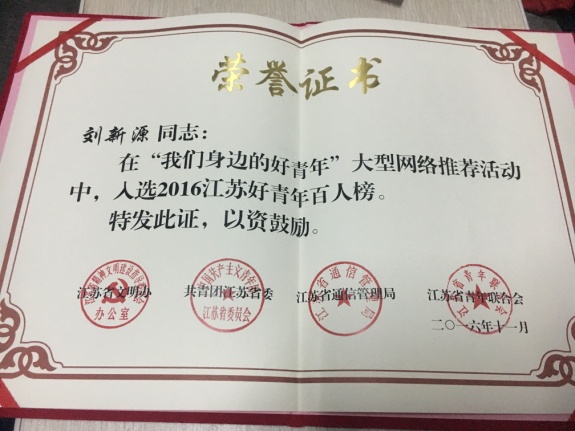 荣誉证书
刘新源同志：
在“我们身边的好青年”大型网络推荐活动
中，入选2016江苏好青年百人榜。
特发此证，以资鼓励。
江苏省文明办 共青团江苏省委 江苏省通信管理局 江苏省青年联合会
办公室 江苏省委员会
二〇一六年十一月